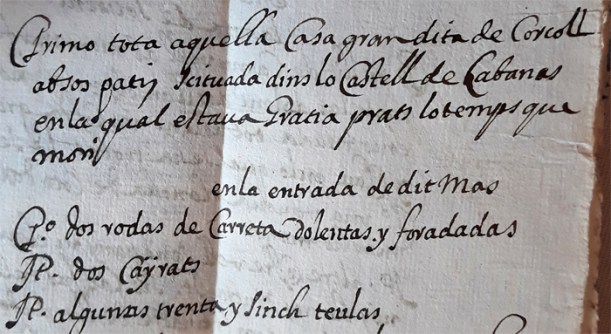 Primo tota aquella Casa gran dita de Corcoll
absos patis scituada dins lo Castell de Cabanas
en la qual estaua Gratia prats lo temps que
mori
en la entrada de dit Mas
Po. dos rodas de Carreta dolentas y foradadas
It. dos Cayrats
It. algunas trenta y sinch teulas